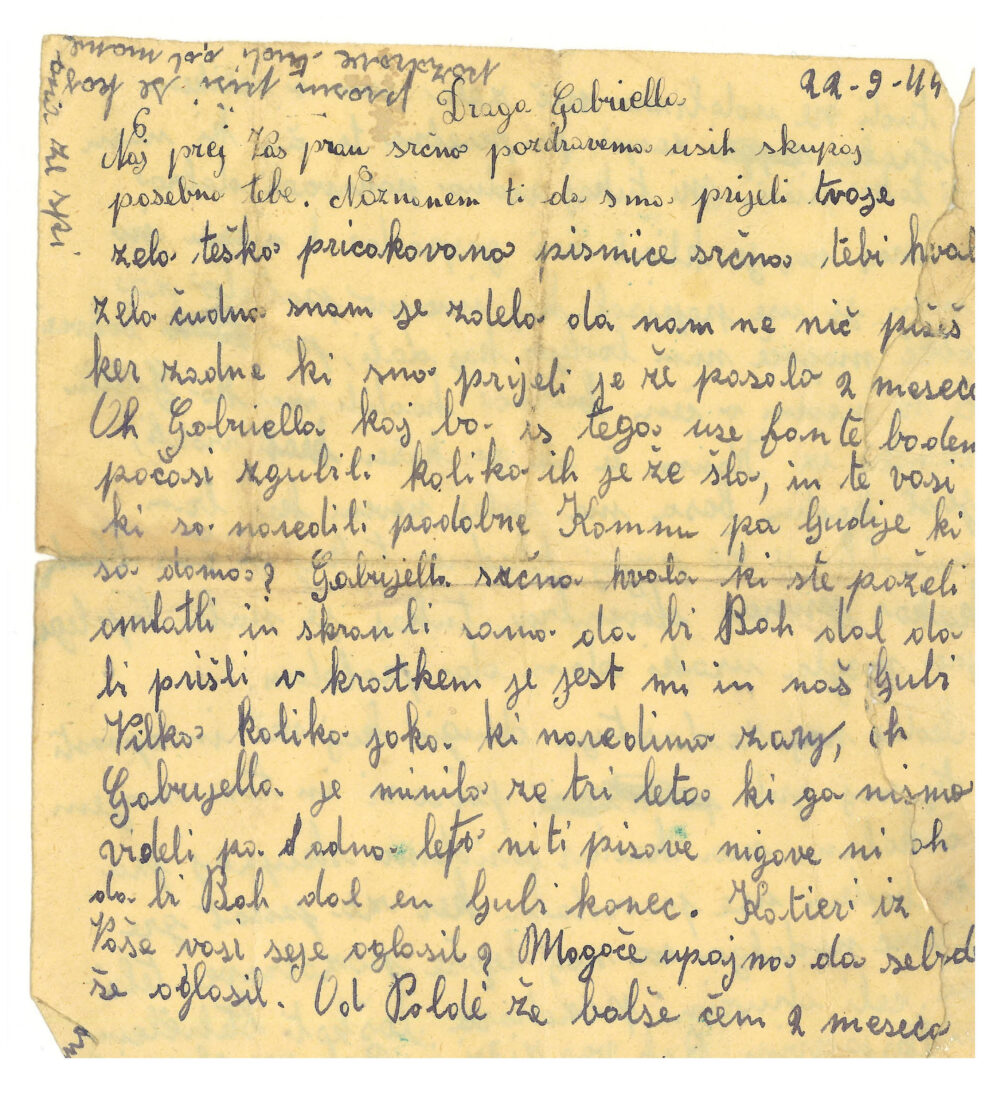 22-9-44
Draga Gabriella
Naj prej Vas prau srčno pozdravemo usih skupaj
posebno tebe. Naznanem ti da smo prijeli tvoje
zelo teško pričakovano pismice srčno tebi hval
zelo čudno snam je zdelo da nam ne nič pišeš
ker zadne ki smo prijeli je že pasalo 2 meseca
Oh Gabriella kaj bo is tega use fante bodem
počasi zgubili koliko ih je že šlo, in te vasi
ki so naredili podobne Kommu pa ljudije ki
so doma? Gabrijella srčna hvala ki ste poželi
omlatli in skranli samo da bi Boh dal da
bi prišli v kratkem je jest mi in naš ljubi
Vilko koliko joka ki naredimo zanj, oh
Gabrijella je minilo že tri leta ki ga nismo
videli pa adno leto niti pisave nigove ni oh
da bi Boh dal en ljubi konec. Katieri iz
Vaše vasi seje oglasil? Mogoče upajmo da sebode
še oglasil. Od Poldé že bolše čem 2 meseca
prosim
pozdrave tudi od mame